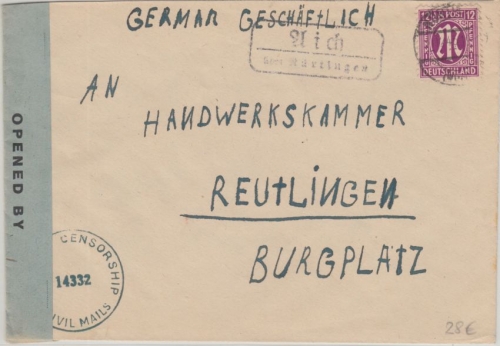 GERMAN GESCHÄFTLICH
Aich
über Nürtingen
12 POST 12
DEUTSCHLAND
AN
HANDWERKSKAMMER
REUTLINGEN
BURGPLATZ
OPENED BY
CENSORSHIP
14332
CIVIL MAILS
28€